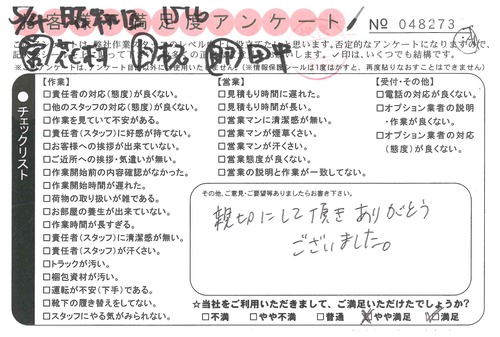 お客様満足度アンケート
№ 048273
【作業】
□責任者の対応(態度)が良くない。
□他のスタッフの対応(態度)が良くない。
□作業を見ていて不安がある。
□責任者(スタッフ)に好感が持てない。
□お客様への挨拶が出来ていない。
□ご近所への挨拶・気遣いが無い。
□作業開始前の内容確認がなかった。
□作業開始時間が遅れた。
□荷物の取り扱いが雑である。
□お部屋の養生が出来ていない。
□作業時間が長すぎる。
□責任者(スタッフ)に清潔感が無い。
□責任者(スタッフ)が汗くさい。
□トラックが汚い。
□梱包資材が汚い。
□運転が不安(下手)である。
□靴下の履き替えをしてない。
□スタッフにやる気がみられない。
【営業】
□見積もり時間が長い。
□見積もり時間に遅れた。
□営業マンに清潔感が無い。
□営業マンが煙草くさい。
□営業マンが汗くさい。
□営業態度が良くない。
□営業の説明と作業が一致してない。
【受付・その他】
□電話の対応が良くない。
□オプション業者の説明
・作業が良くない。
□オプション業者の対応
(態度)が良くない。
チェックリスト
その他、ご意見・ご要望等ありましたらお書き下さい。
親切にして頂きありがとう
ございました。
☆当社をご利用いただきまして、ご満足いただけたでしょうか?
□不満 □やや不満 □普通 □やや満足 □満足